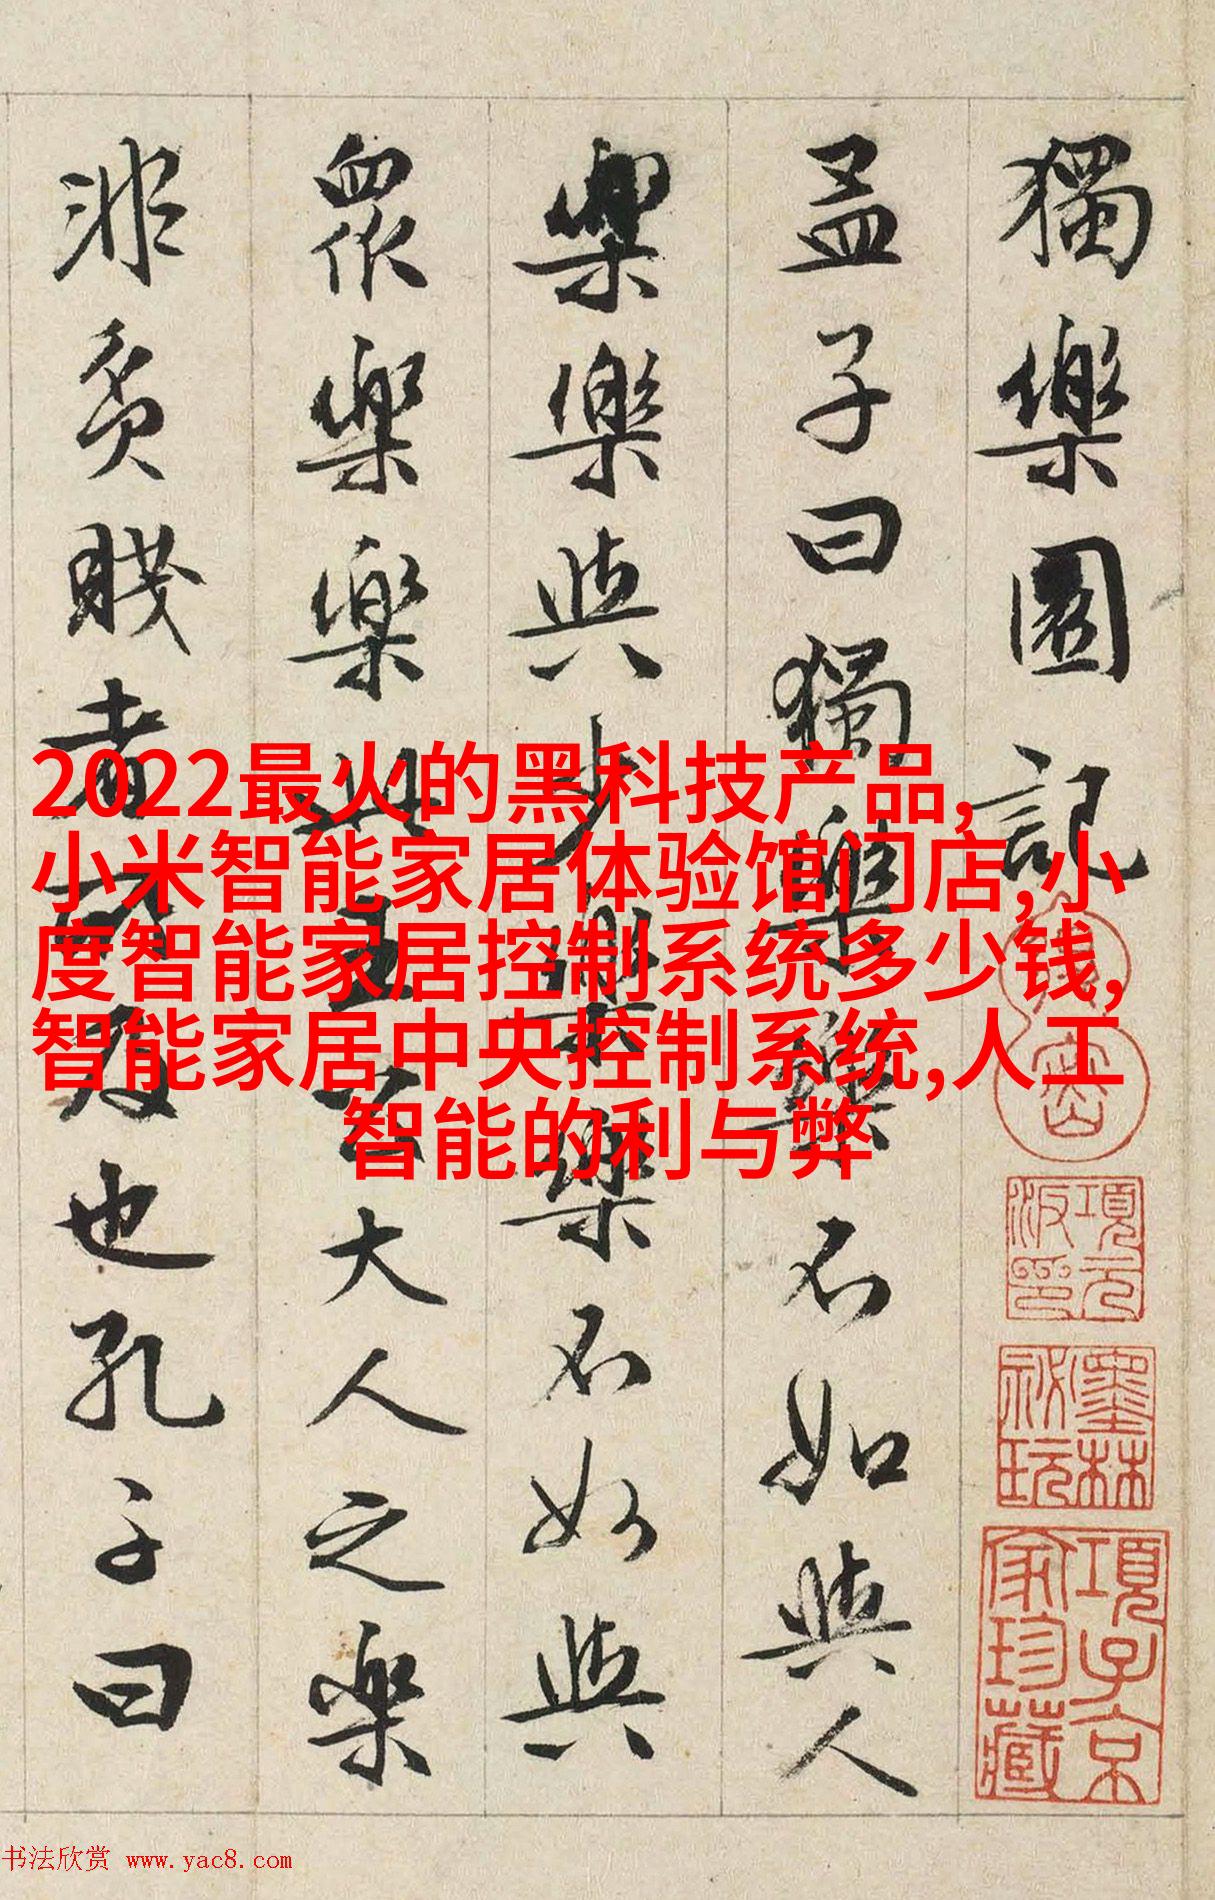 獨樂園記
孟子曰獨樂樂不如與人
樂樂與少樂樂不如與
衆樂樂此王公大人之樂
非貧賤者所及也孔子曰
2022最火的黑科技产品,
小米智能家居体验馆门店,小
度智能家居控制系统多少钱,
智能家居中央控制系统,人工
智能的利与弊
項元
汴印
墨林
祕玩
項子京
家珍藏
书法欣赏 www.yac8.com